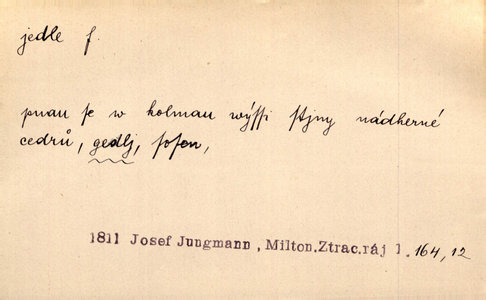 jedle f.
pnau se w kolmau wýssi stjny nádherné
cedrů, gedlj, sosen,
1811 Josef Jungmann, Milton.Ztrac.ráj 1. 164, 12